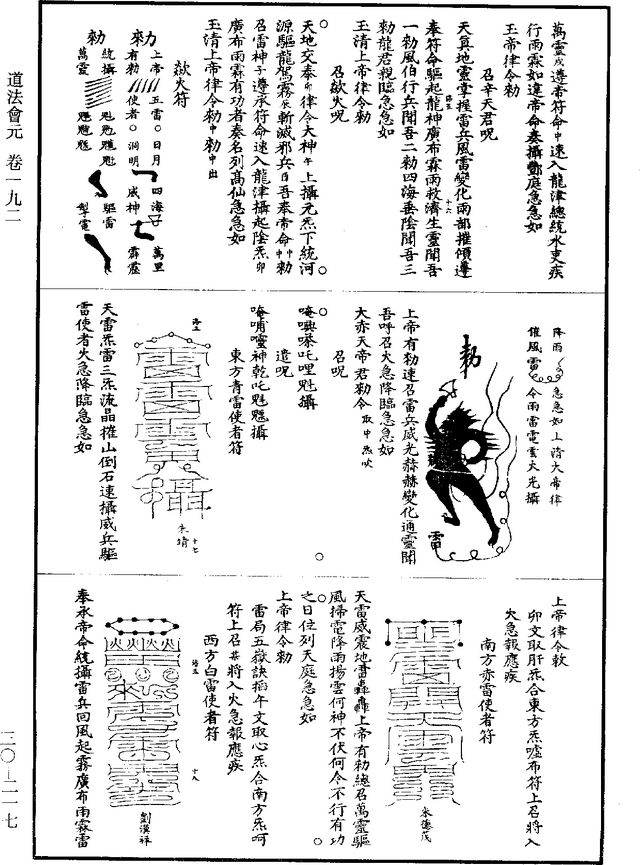 道法會元 卷一九二
三〇—二一七
萬靈戌遵吾符命中速入龍津總統水吏疾
行雨霖如違帝命奏攝酆庭急急如
玉帝律令勑
召辛天君呪
天真地靈掌握雷兵風雷變化雨部摧傾遵
奉符命驅起龍神廣布霖雨救濟生靈聞吾
一勑風伯行兵聞吾二勑四海垂陰聞吾三
勑龍君親臨急急如
玉清上帝律令勑
召歘火呪
天地交泰卯律令大神午上攝元炁下統河
源驅龍駕霧辰斬滅邪兵日吾奉帝命中勑
召雷神子遵承符命速入龍津攝起陰炁卯
廣布雨霖有功者奏名列高仙急急如
玉清上帝律令勑中勑中出
歘火符
上帝 五雷 日月 四海 萬里
勑 有勑 使者 洞明 威神 霹靂
統攝
勑 萬靈 驅雷 掣電
降雨 急急如上清大帝律
催風雷 令雨雷電雲火光攝
勑
雷
上帝有勑速召雷兵威光赫赫變化通靈聞
吾呼召火急降臨急急如
大赤天帝君勑令取中炁吹
召呪
唵㗲㗫吒哩魁攝
遣呪
唵哺囕神乾吒魁魒攝
東方青雷使者符
朱靖
十七
天雷炁雷三炁流晶摧山倒石速攝威兵驅
雷使者火急降臨急急如
上帝律令敕
卯文取肝炁合東方炁噓布符上召將入
火急報應疾
南方赤雷使者符
朱德茂
天雷威震地雷轟轟上帝有勑總召萬靈驅
風掃電降雨揚雲何神不伏何令不行有功
之日位列天庭急急如
上帝律令勑
雷局五嶽訣掐午文取心炁合南方炁呵
符上召某將入火急報應疾
西方白雷使者符
火火火火
劉漢祥
十八
奉承帝命統攝雷兵回風起霧廣布雨霖雷